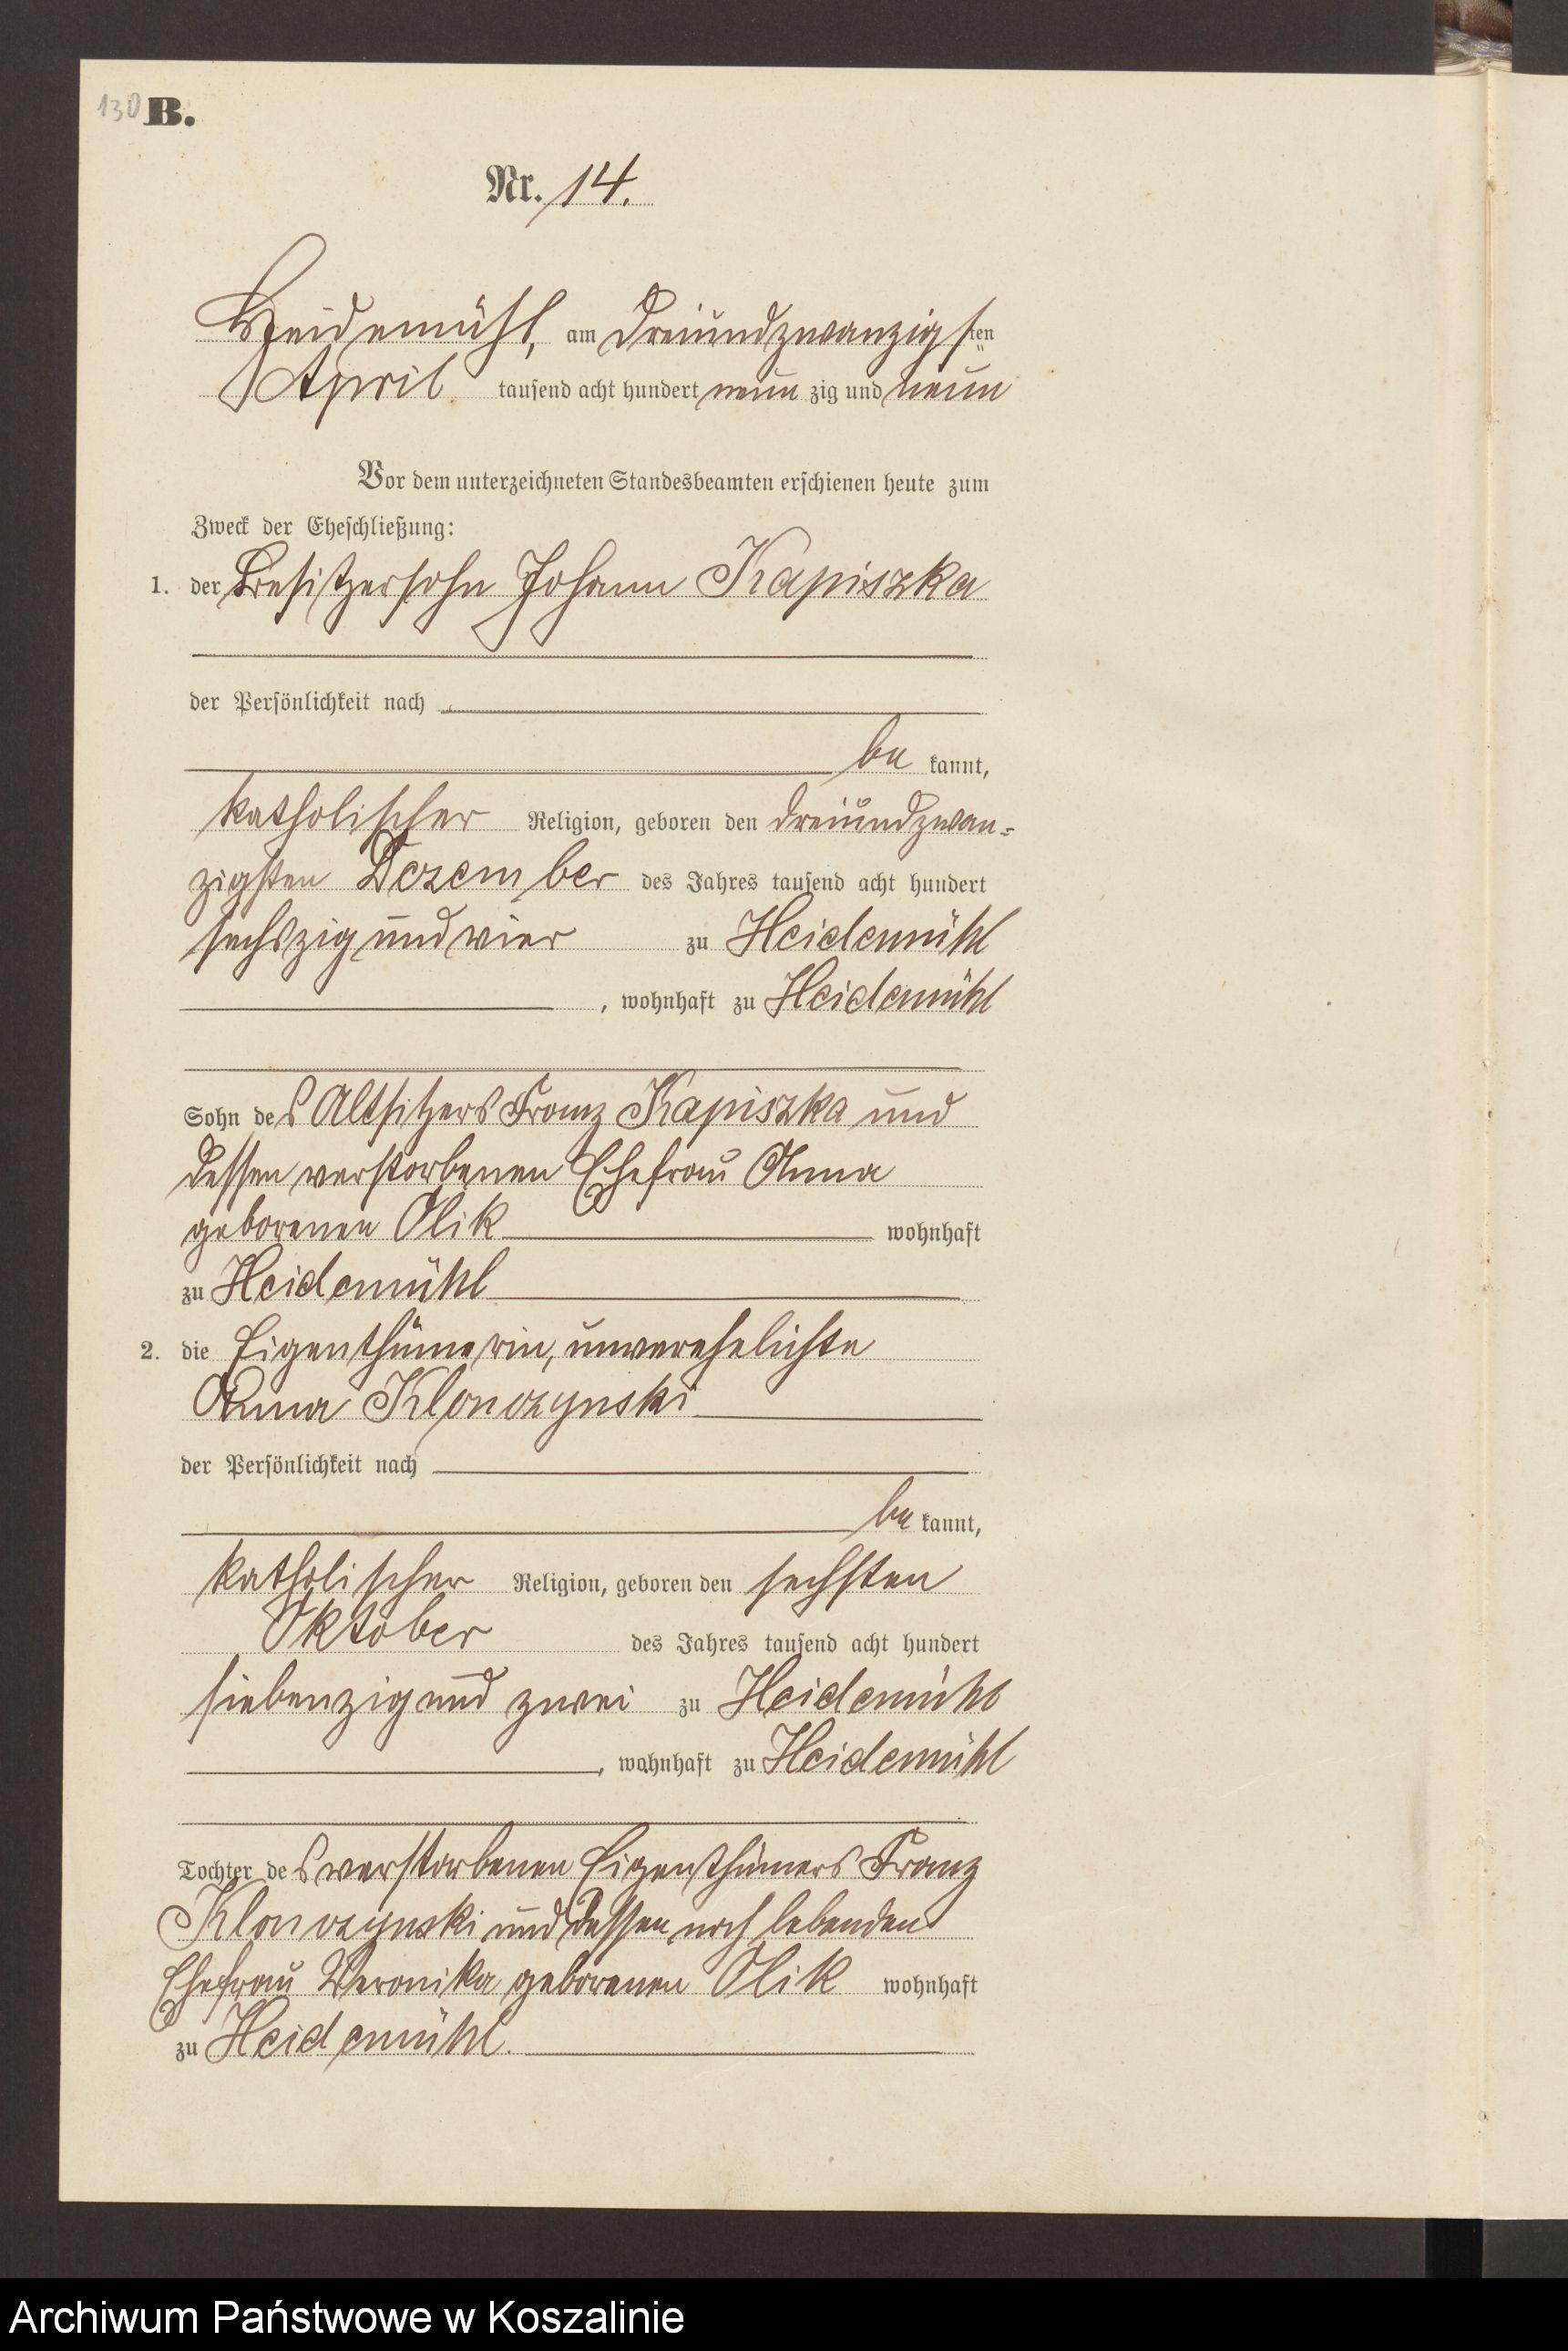 130 B.
Nr. 14.
Heidemühl, am dreiundzwanzigsten
April tausend acht hundert neunzig und neun
Vor dem unterzeichneten Standesbeamten erschienen heute zum
Zweck der Eheschließung:
1. der Besitzersohn Johann Kapiszka
der Persönlichkeit nach
be kannt,
katholischer Religion, geboren den dreiundzwan-
zigsten Dezember des Jahres tausend acht hundert
sechszig und vier zu Heidemühl
, wohnhaft zu Heidemühl
Sohn des Altsitzers Franz Kapiszka und
dessen verstorbenen Ehefrau Anna
geborenen Olik wohnhaft
zu Heidemühl
2. die Eigenthümerin, unverehelichte
Anna Klonczynski
der Persönlichkeit nach
be kannt,
katholischer Religion, geboren den sechsten
Oktober des Jahres tausend acht hundert
siebenzig und zwei zu Heidemühl
, wohnhaft zu Heidemühl
Tochter des verstorbenen Eigenthümers Franz
Klonczynski und dessen noch lebenden
Ehefrau Veronika geborenen Olik wohnhaft
zu Heidemühl.
Archiwum Państwowe w Koszalinie